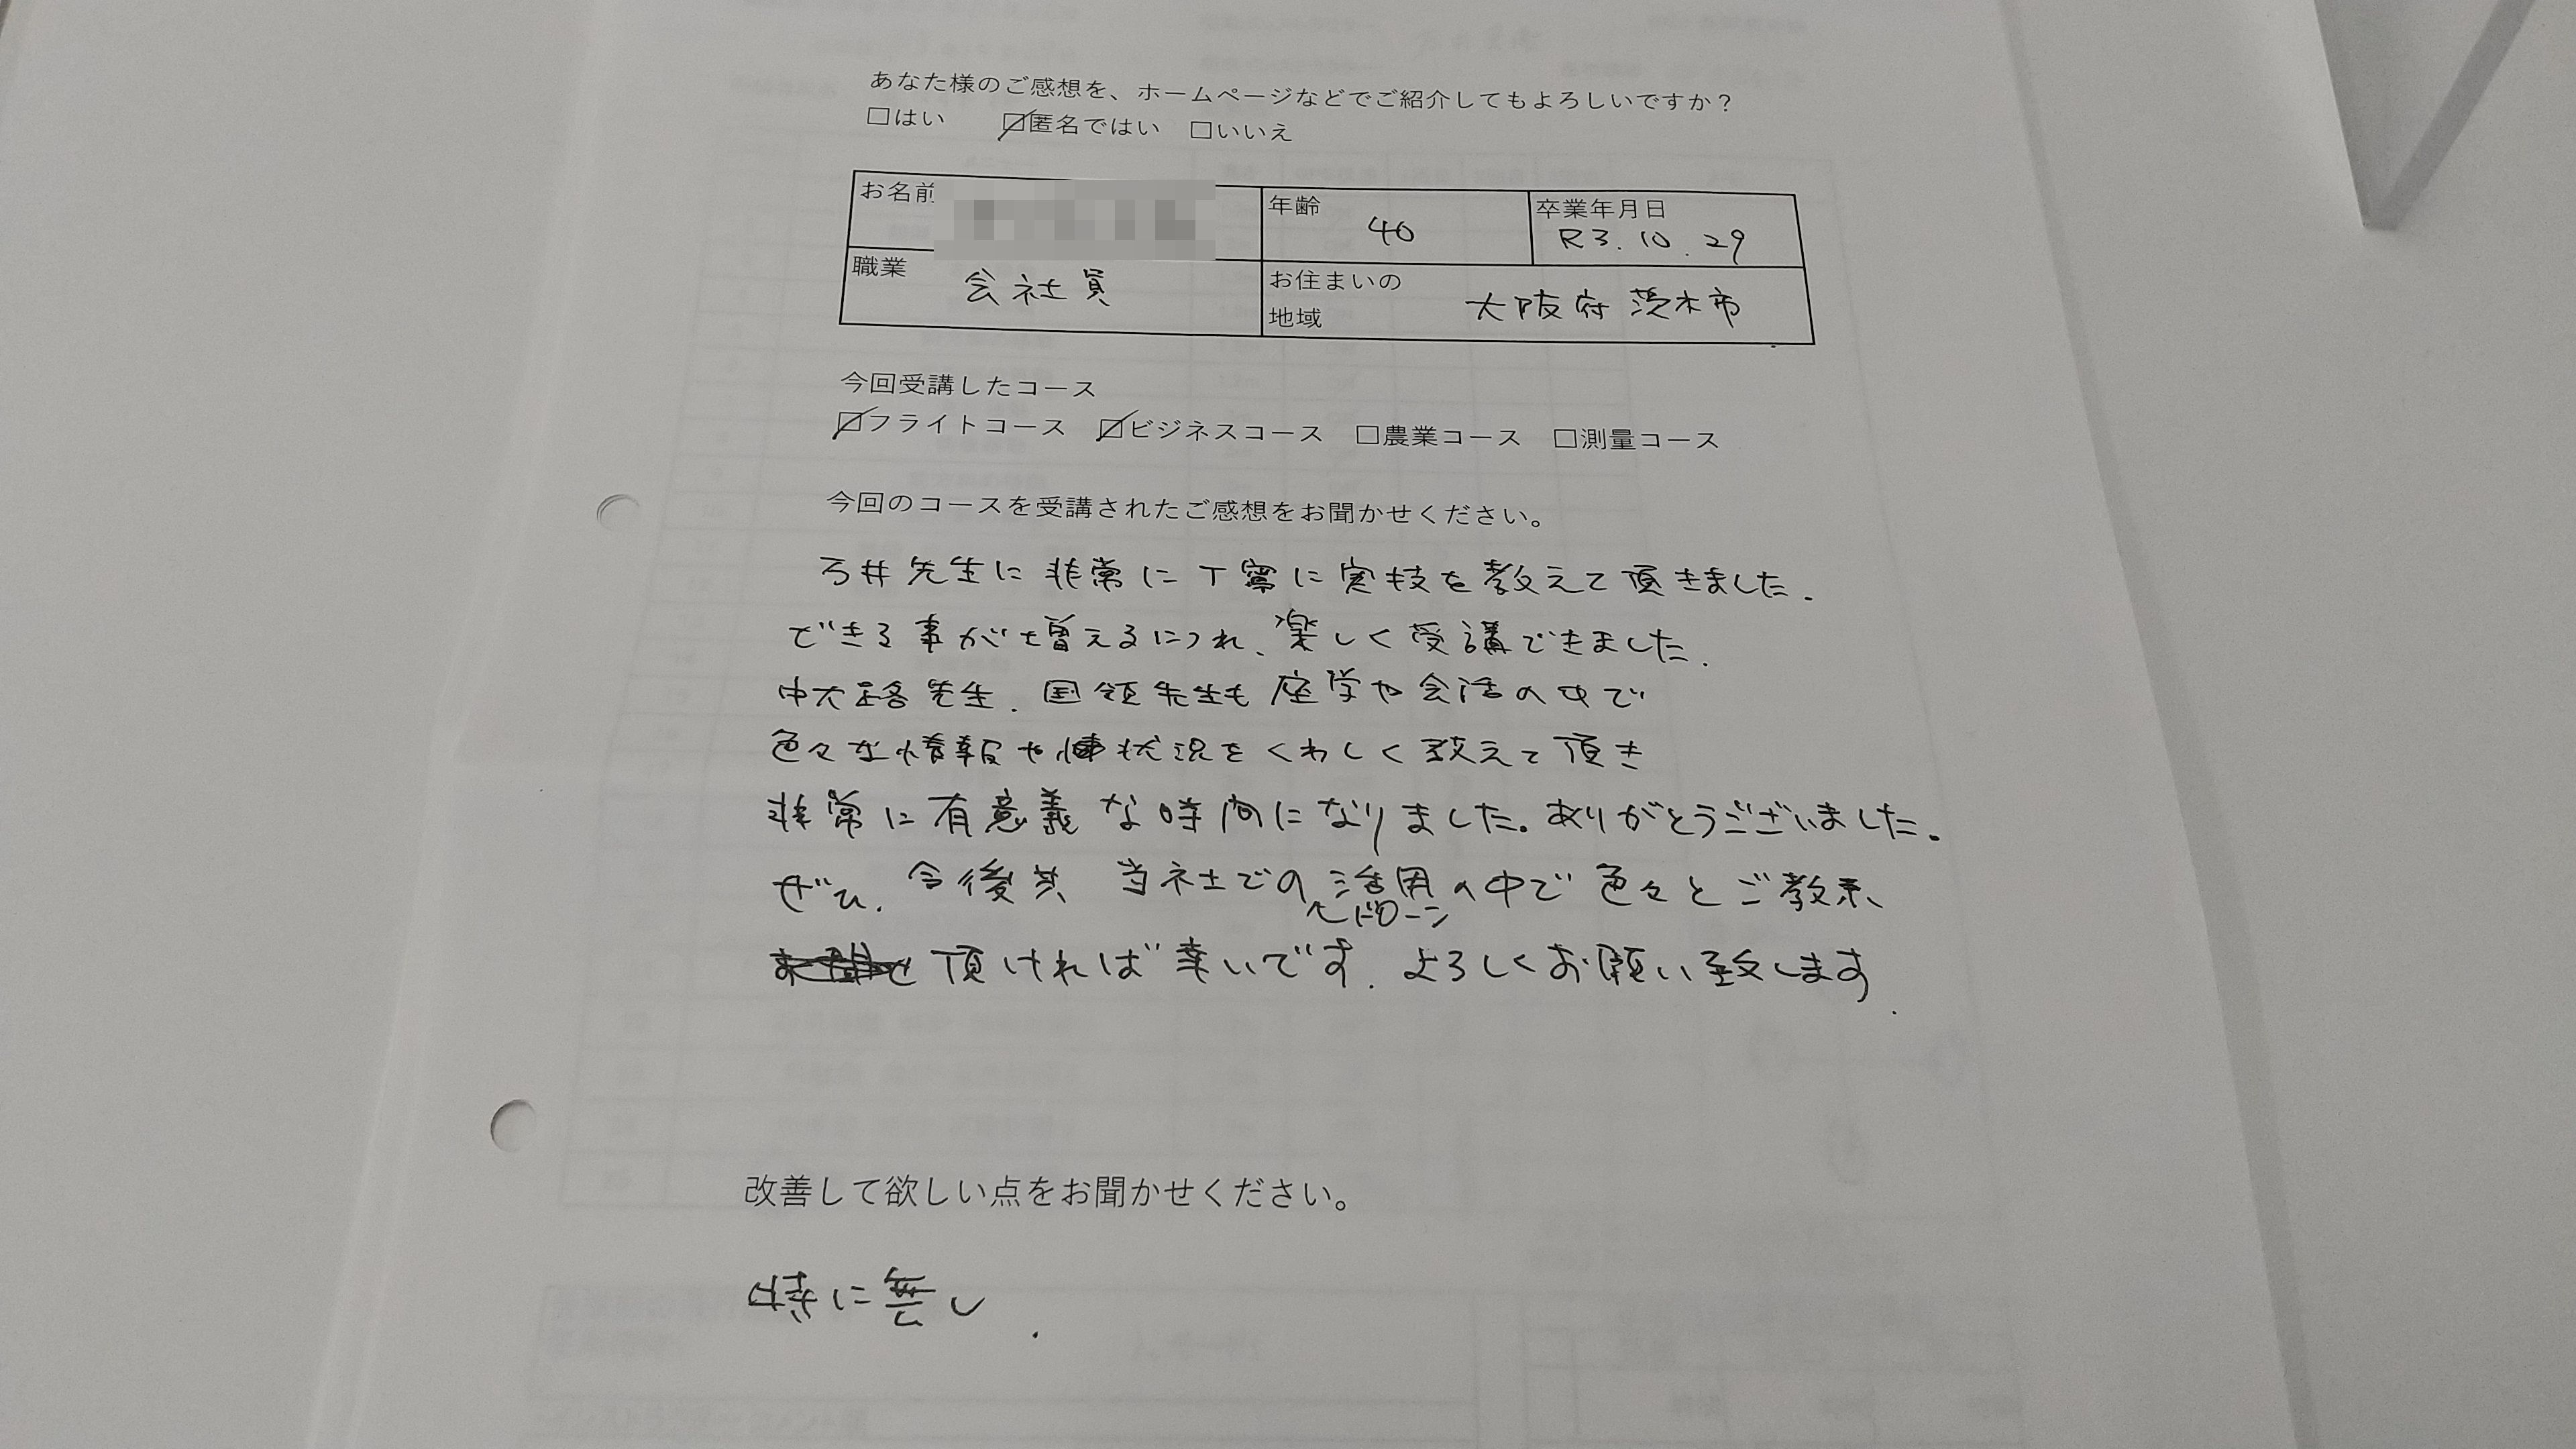 あなた様のご感想を、ホームページなどでご紹介してもよろしいですか？
□はい ☑匿名ではい □いいえ
お名前
年齢 40
卒業年月日 R3.10.29
職業 会社員
お住まいの地域 大阪府茨木市
今回受講したコース
☑フライトコース ☑ビジネスコース □農業コース □測量コース
今回のコースを受講されたご感想をお聞かせください。
石井先生に非常に丁寧に実技を教えて頂きました.
できる事が増えるにつれ、楽しく受講できました.
中大路先生. 国領先生も座学や会話の中で
色々な情報や状況をくわしく教えて頂き
非常に有意義な時間になりました。ありがとうございました.
ぜひ. 今後共 当社でのドローン活用の中で色々とご教示、
頂ければ幸いです. よろしくお願い致します.
改善して欲しい点をお聞かせください。
特に無し.